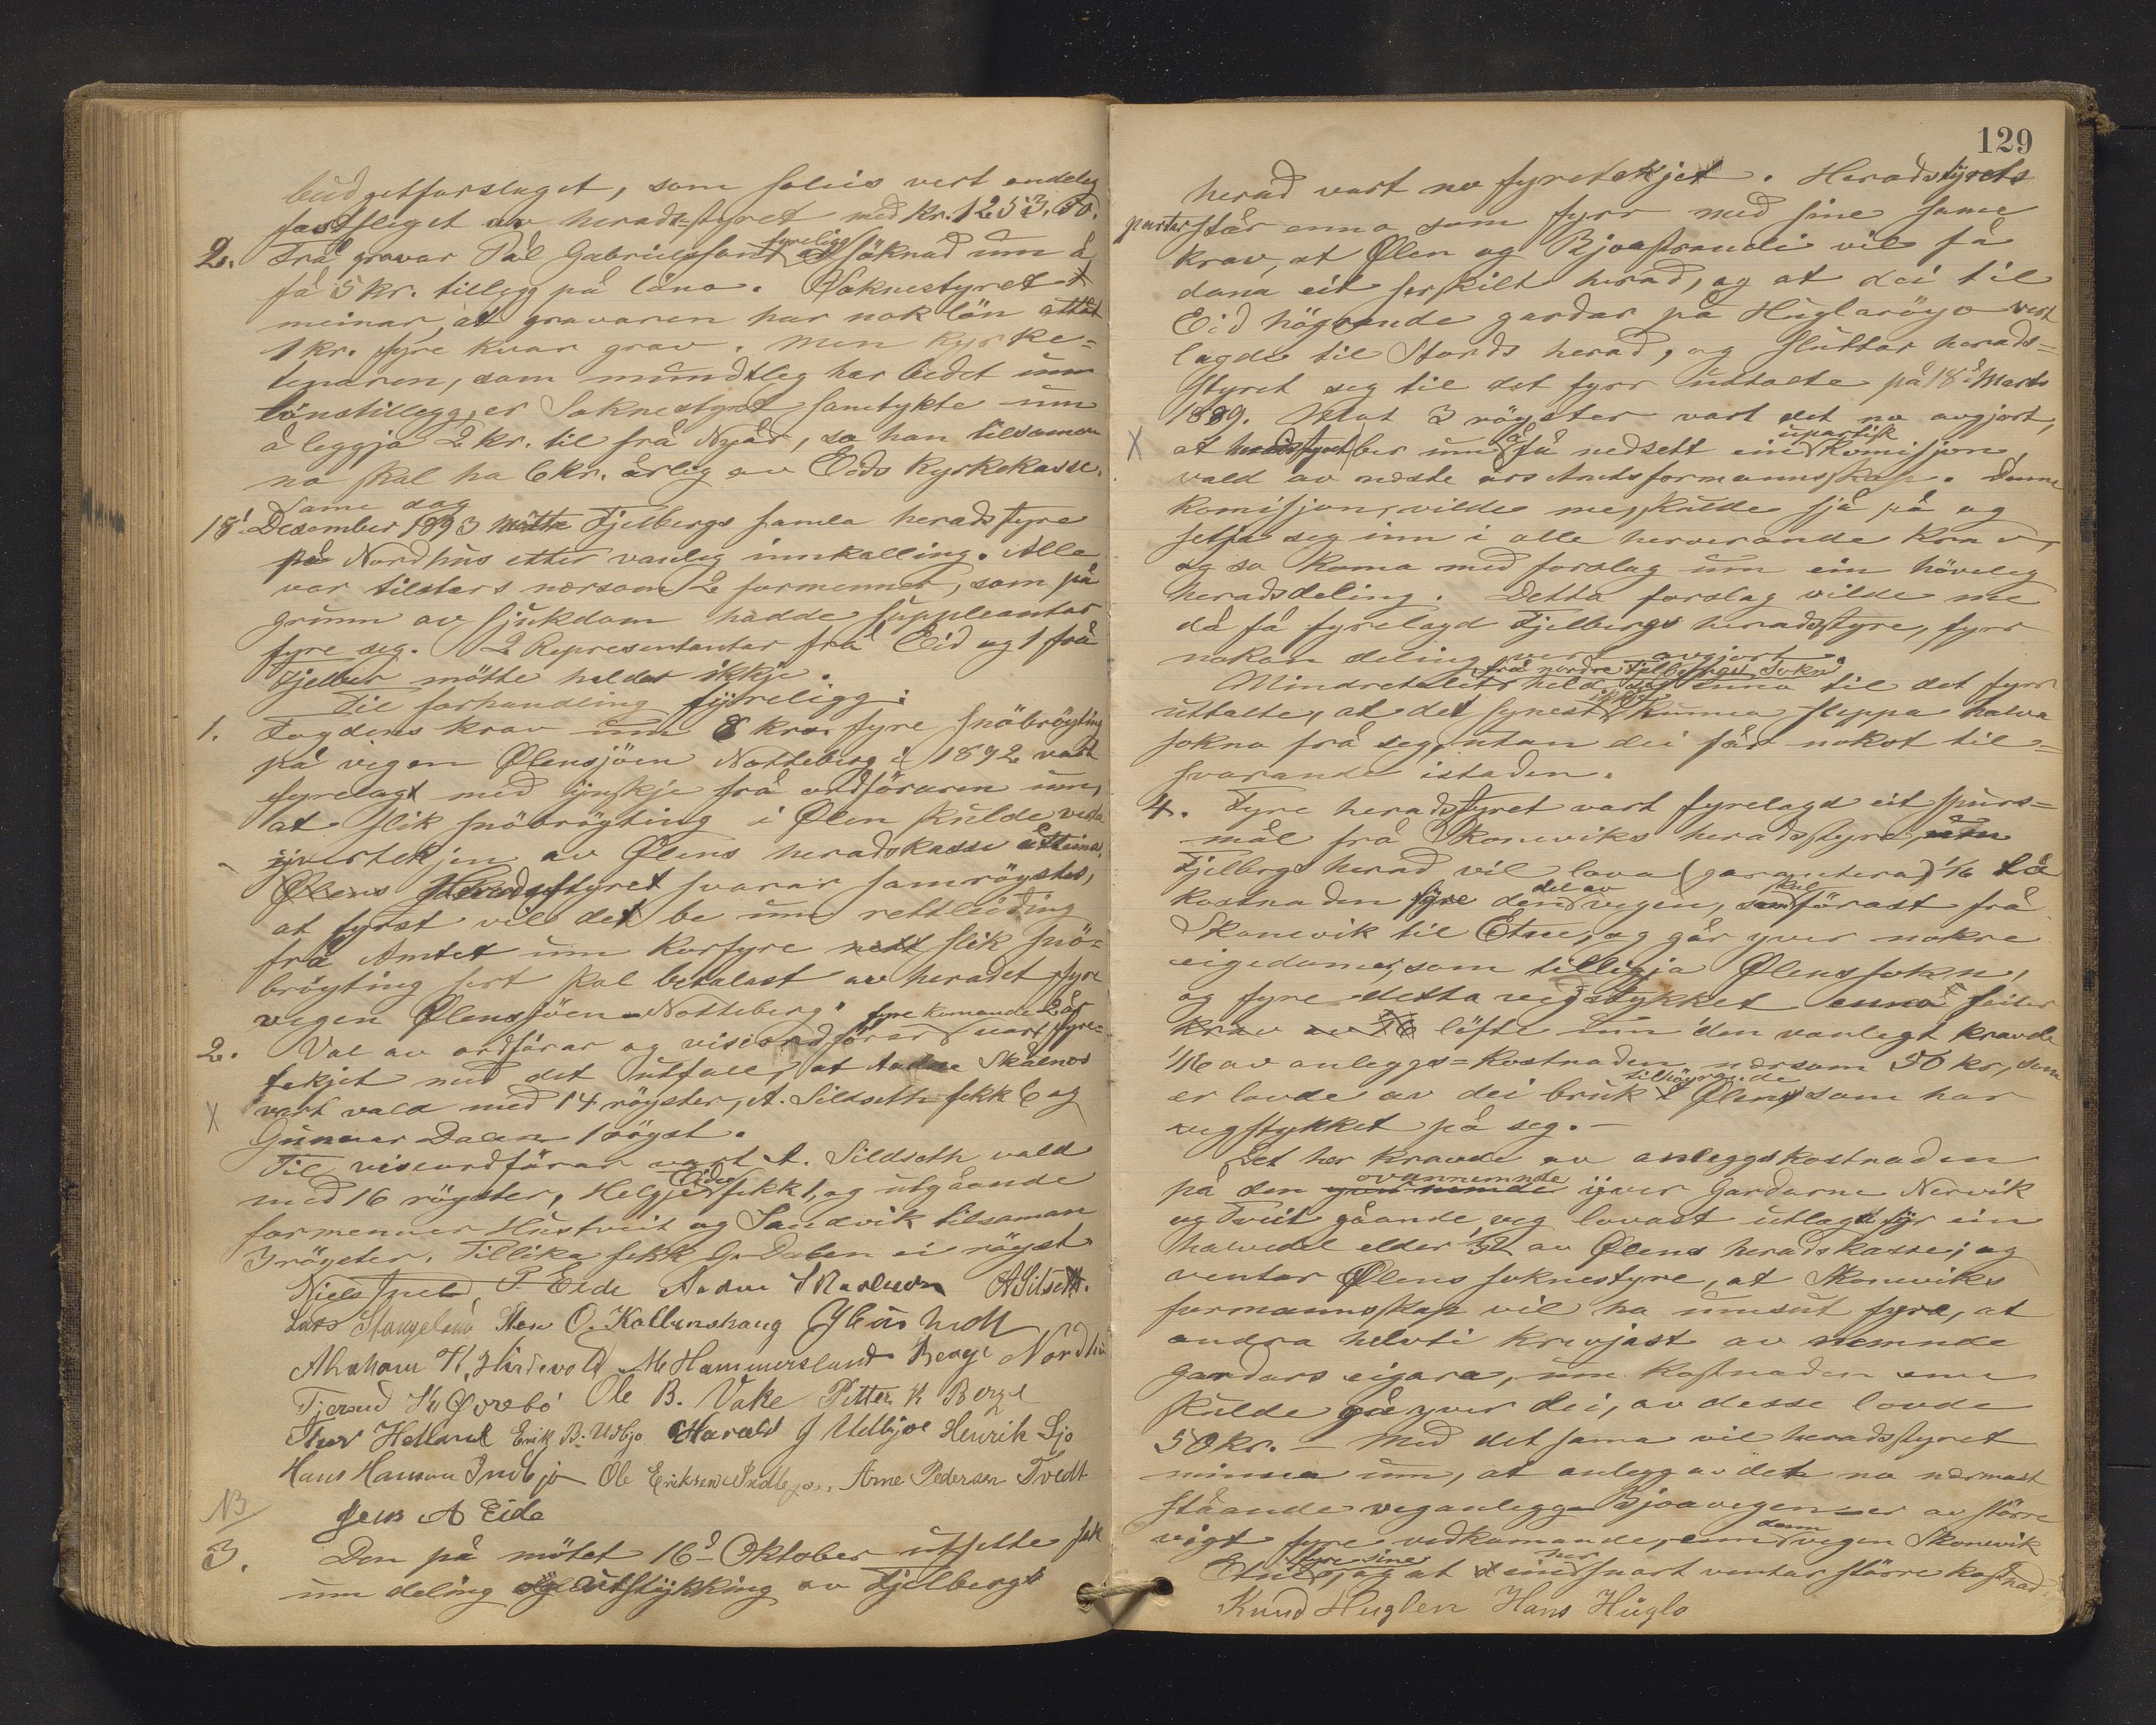 budgetforslaget, som soleis vert endeleg
fastsleget av herads-styret med Kr. 1253,50.
2. Frå gravar Pål Gabrielsson fyreligg söknad um å
få 5 kr. tillegg på löna. Soknestyret
meinar, at gravaren har nok lön attåt
1 kr. fyre kvar grav. Men kyrke-
tenaren, som mundtleg har bedet um
lönstillegg, er Soknestyret samtykte um
å leggja 2 kr. til frå Nyår, so han tilsaman
no skal ha 6 kr. årleg av Eids Kyrkekasse.
Same dag
18' Desember 1893 mötte Fjelbergs samla heradstyre
på Nordhus etter vanleg innkalling. Alle
var tilstars nærsom 2 formenner, som på
grunn av sjukdom hadde suppleantar
fyre seg. 2 Representantar frå Eid og 1 frå
Fjelber mötte heldar ikkje.
Til forhandling fyreligg:
1. Fogdens krav um 8 kror fyre snöbröyting
på vegen Ølensjöen Notteberg i 1892 vart
fyrelagt med ynskje frå ordföraren um,
at slik snöbröyting i Ølen skulde verta
yvertekjen av Ølens heradskasse
Ølens Heradsstyret svarar samröystes,
at fyrst vil det be um rettleiding
frå Amtet um korfyre nett slik snö-
bröyting sert skal betalast av heradet fyre
vegen Ølensjöen - Notteberg. fyre komande 2 år
2. Val av ordförar og viseordförar vart fyre-
tekjet med det utfall, at Aadne Skålnes
X vart vald med 14 röyster, A. Sildseth fekk 6 og
Gunnar Dalen 1 röyst.
Til viseordförar vart A. Sildseth vald
med 16 röyster, Helgje Eide fekk 1, og utgåande
formenner Hustveit og Sandvik tilsaman
3 röyster. Tillika fekk G. Dalen ei röyst.
P. Eide A Sildseth.
Lars Stangeland Sten O. Kallenshaug
Abraham K. M. Hammersland Berge Nordhu
Tjerand Ole B. Vake Pitter K Berge
Thor Hetland Erik B. Udbjo Harald J Udbjoe Henrik Sjo
Hans Hanson Indbjo Ole Eriksen Indbjo. Arne Pedersen Tvedt
NB Jens A Eide
3. Den på mötet 16d Oktober utsette sak
um deling og utstykking av Fjelbergs
129
herad vart no fyretekjet. Heradstyrets
partar står enno som fyrr med sine same
krav, at Ølen og Bjoastrandi vil få
dana eit serskilt herad, og at dei til
Eid högrande gardar på Huglaröyo vert
lagde til Stords herad, og sluttar herads-
styret seg til det fyrr uttalte på 18d Marts
1889. Mot 3 röyster vart det no avgjort,
X at heradstyret ber um å få nedsett ein upartisk Komisjon,
vald av næste års Amtsformannskap. Denne
Komisjon, vilde me, skulde sjå på og
setja seg inn i alle herverande krav,
og so koma med forslag um ein höveleg
heradsdeling. Detta forslag vilde me
då få fyrelagd Fjelbergs heradsstyre, fyrr
nokon deling vert avgjort.
Mindretalet frå nordre Fjelberget Sokn held seg enno til det fyrr
uttalte, at det synest ikkje kunna sleppa halva
sokna frå seg, utan dei får nokot til-
svarande istaden.
4. Fyre heradstyret vart fyrelagd eit spurs-
mål frå Skoneviks heradsstyre, um
Fjelbergs herad vil lova (garantera) 1/16 tå
kostnaden fyre den del av vegen, som skal förast frå
Skonevik til Etne, og går yver nokre
eigedomer, som tilligja Ølens sokn,
og fyre detta vegstykket enno
krav av 16 löfte um den vanlegt kravde
1/16 av anleggs-kostnaden nærsom 50 kr, som
er lovde av dei bruk tilhöyrande Ølen, som har
vegstykket på seg. -
Det her kravde av anleggskostnaden
på den ovannemnde yver Gardarne Nervik
og Tveit gåande veg lovast utlagt fyr ein
halvedel elder 1/32 av Ølens heradskasse; og
ventar Ølens soknestyre, at Skoneviks
formannskap vil ha umsut fyre, at
andra helvti krevjast av nemnde
gardars eigara, um kostnaden enn
skulde gå yver dei, av desse lovde
50 kr. - Med det sama vil heradsstyret
minna um, at anlegg av det no nærmast
ståande veganlegg Bjoavegen er av större
vigt fyre vedkomande, enn denn vegen Skonevik
Etne fyre sine, og at ein her snart ventar större kostnad.
Knud Huglen Hans Huglo